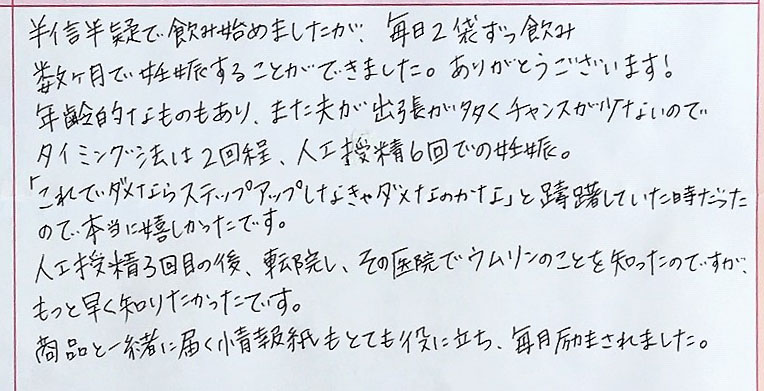 半信半疑で飲み始めましたが、毎日2袋ずつ飲み
数ヶ月で妊娠することができました。ありがとうございます!
年齢的なものもあり、また夫が出張が多くチャンスが少ないので
タイミング法は2回程、人工授精6回での妊娠。
「これでダメならステップアップしなきゃダメなのかな」と躊躇していた時だった
ので本当に嬉しかったです。
人工授精3回目の後、転院し、その医院でウムリンのことを知ったのですが、
もっと早く知りたかったです。
商品と一緒に届く情報紙もとても役に立ち、毎月励まされました。